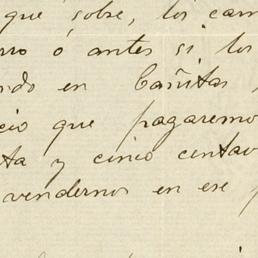 que sobre, los cam
rro ó antes si los
ndo en Cañitas
cio que pagaremo
ta y cinco centav
vendernos en ese p